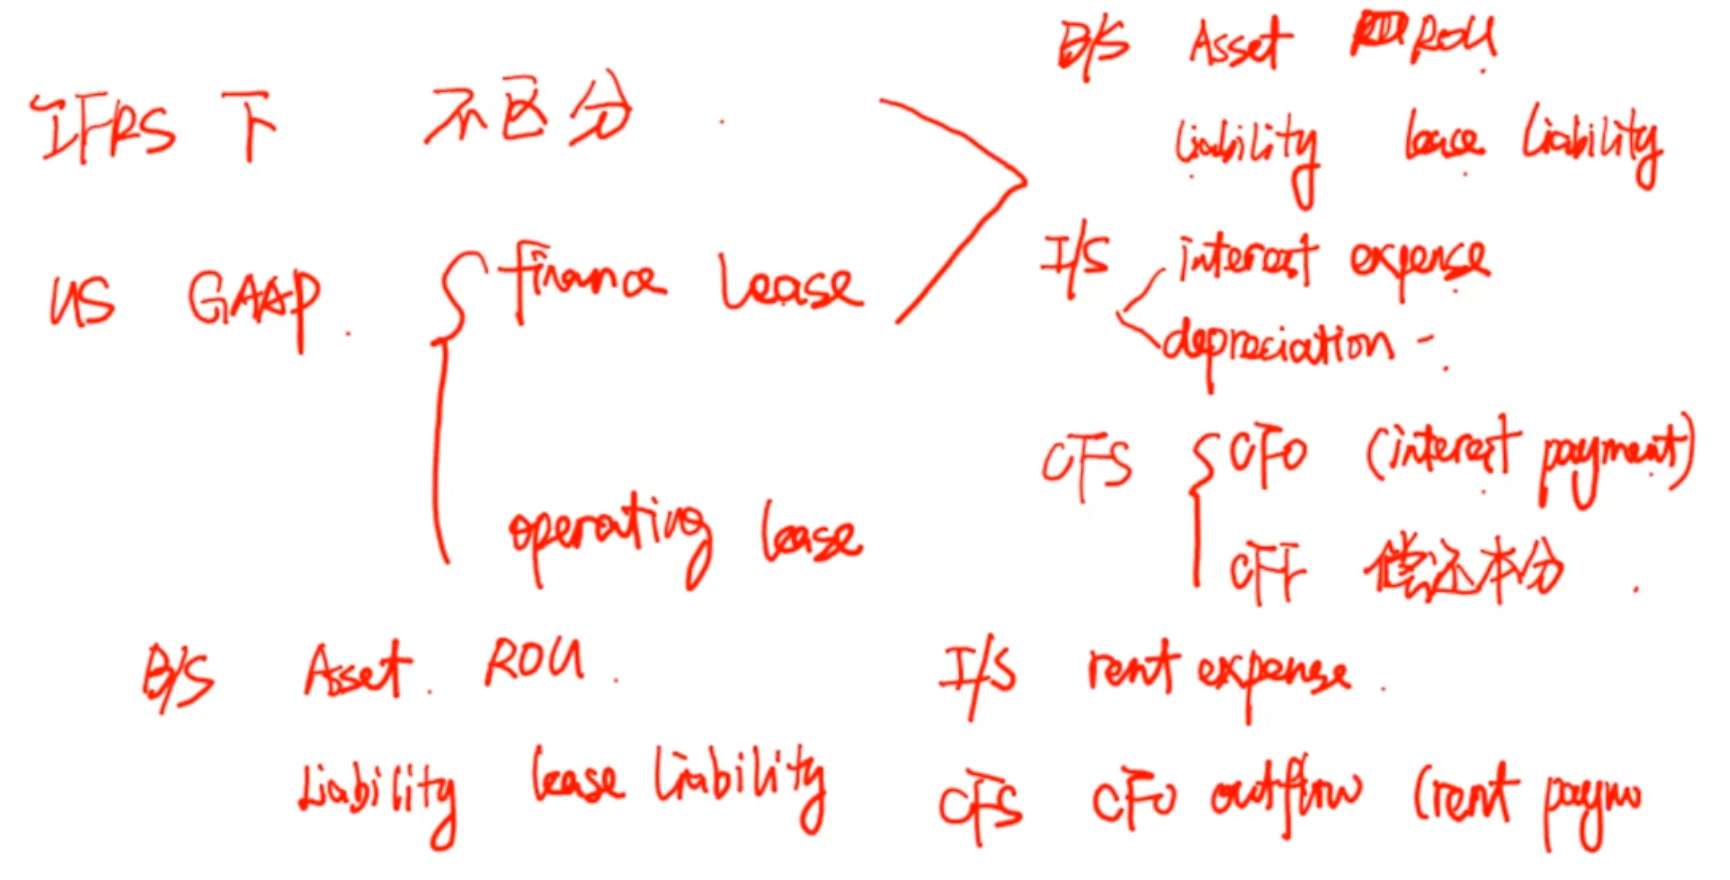 B/S Asset ROU
liability lease liability
IFRS 下 不区分.
I/S interest expense
depreciation -
US GAAP. finance lease
CFS CFO (interest payment)
CFF 偿还本分.
operating lease
B/S Asset. ROU.
Liability lease liability
I/S rent expense.
CFS CFO outflow (rent payme